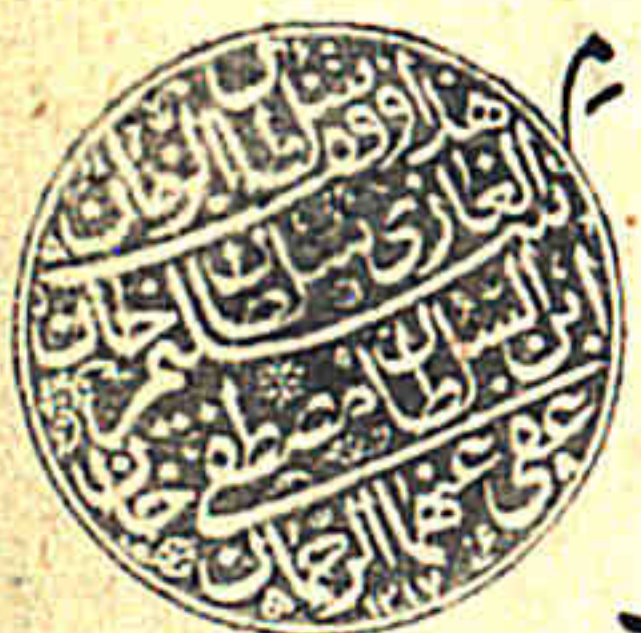 هذا وقف سلطان الزمان
الغازي سلطان سليم خان
ابن السلطان مصطفى خان
عفى عنهما الرحمان ١٢١٧